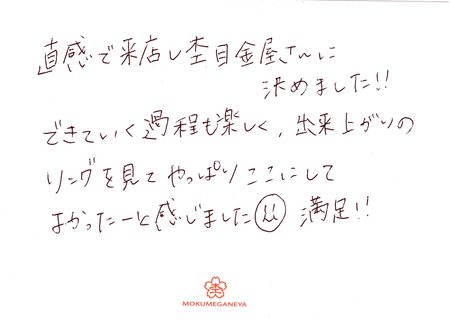 直感で来店し杢目金屋さんに
決めました!!
できていく過程も楽しく、出来上がりの
リングを見てやっぱりここにして
よかったーと感じました 満足!!
MOKUMEGANEYA